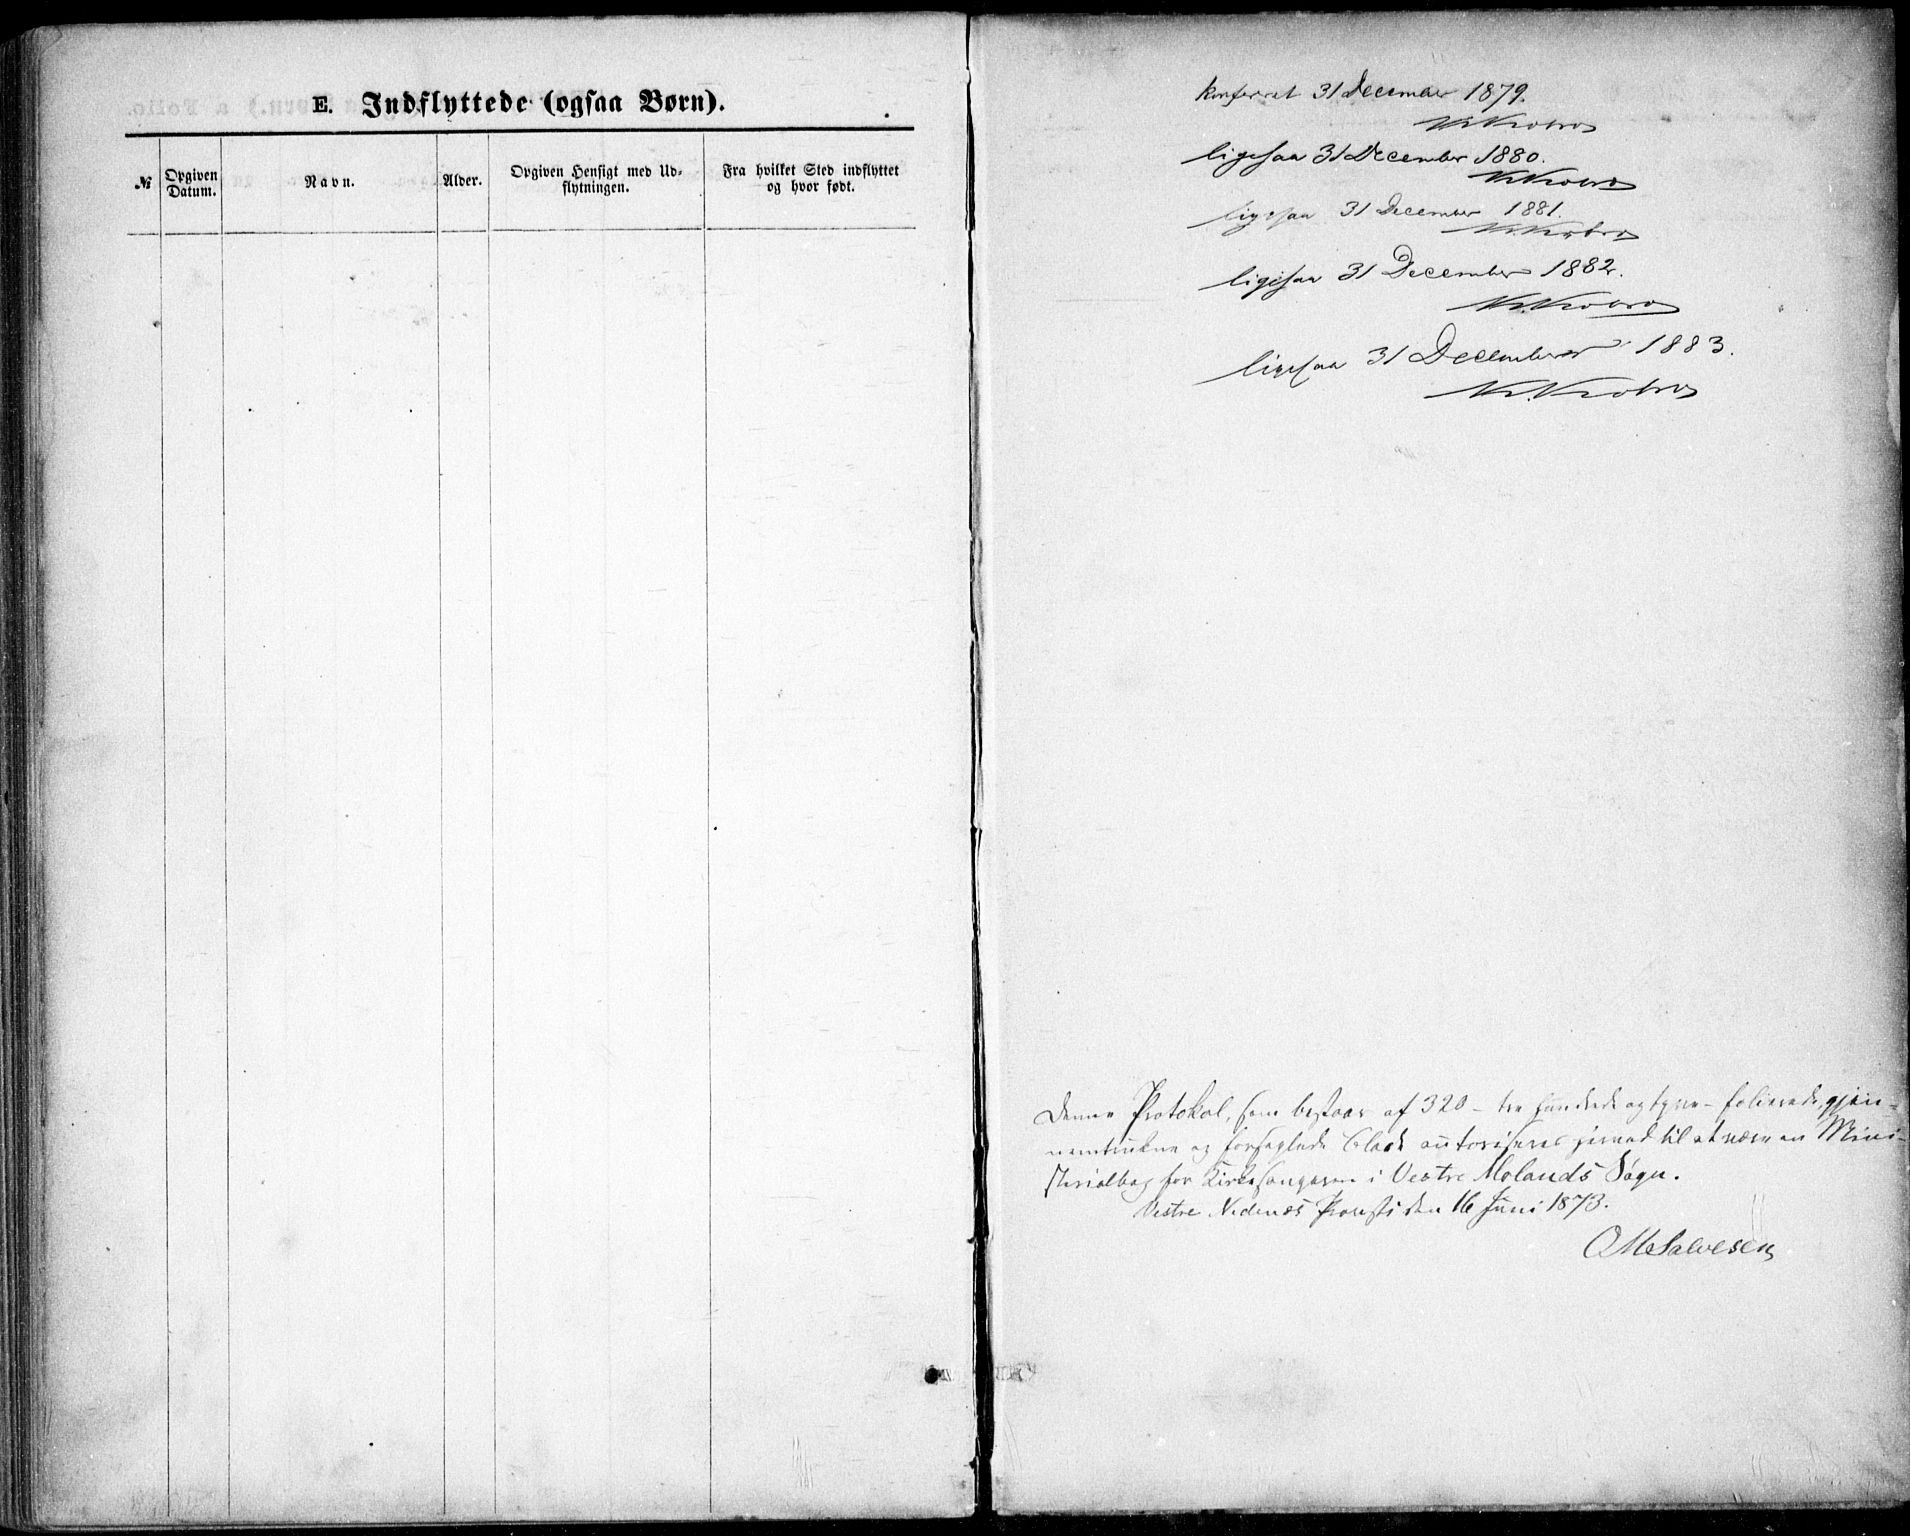 E. Indflyttede (ogsaa Børn).
№
Opgiven
Datum.
Navn.
Alder.
Opgiven Hensigt med Ud-
flytningen.
Fra hvilket Sted indflyttet
og hvor født.
konferert 31 December 1879.
ligesaa 31 December 1880.
ligesaa 31 December 1881.
ligesaa 31 December 1882.
ligesaa 31 December 1883.
Denne Protokol, som bestaar af 320 - tre hundrede og tyve - folierede, gjen-
nemtrukne og forseglede Blade autoriseres hermed til at være en Mini-
sterialbog for Kirkesangeren i Vestre Molands Sogn.
Vestre Nedenæs Provsti den 16 Juni 1873.
OMSalvesen